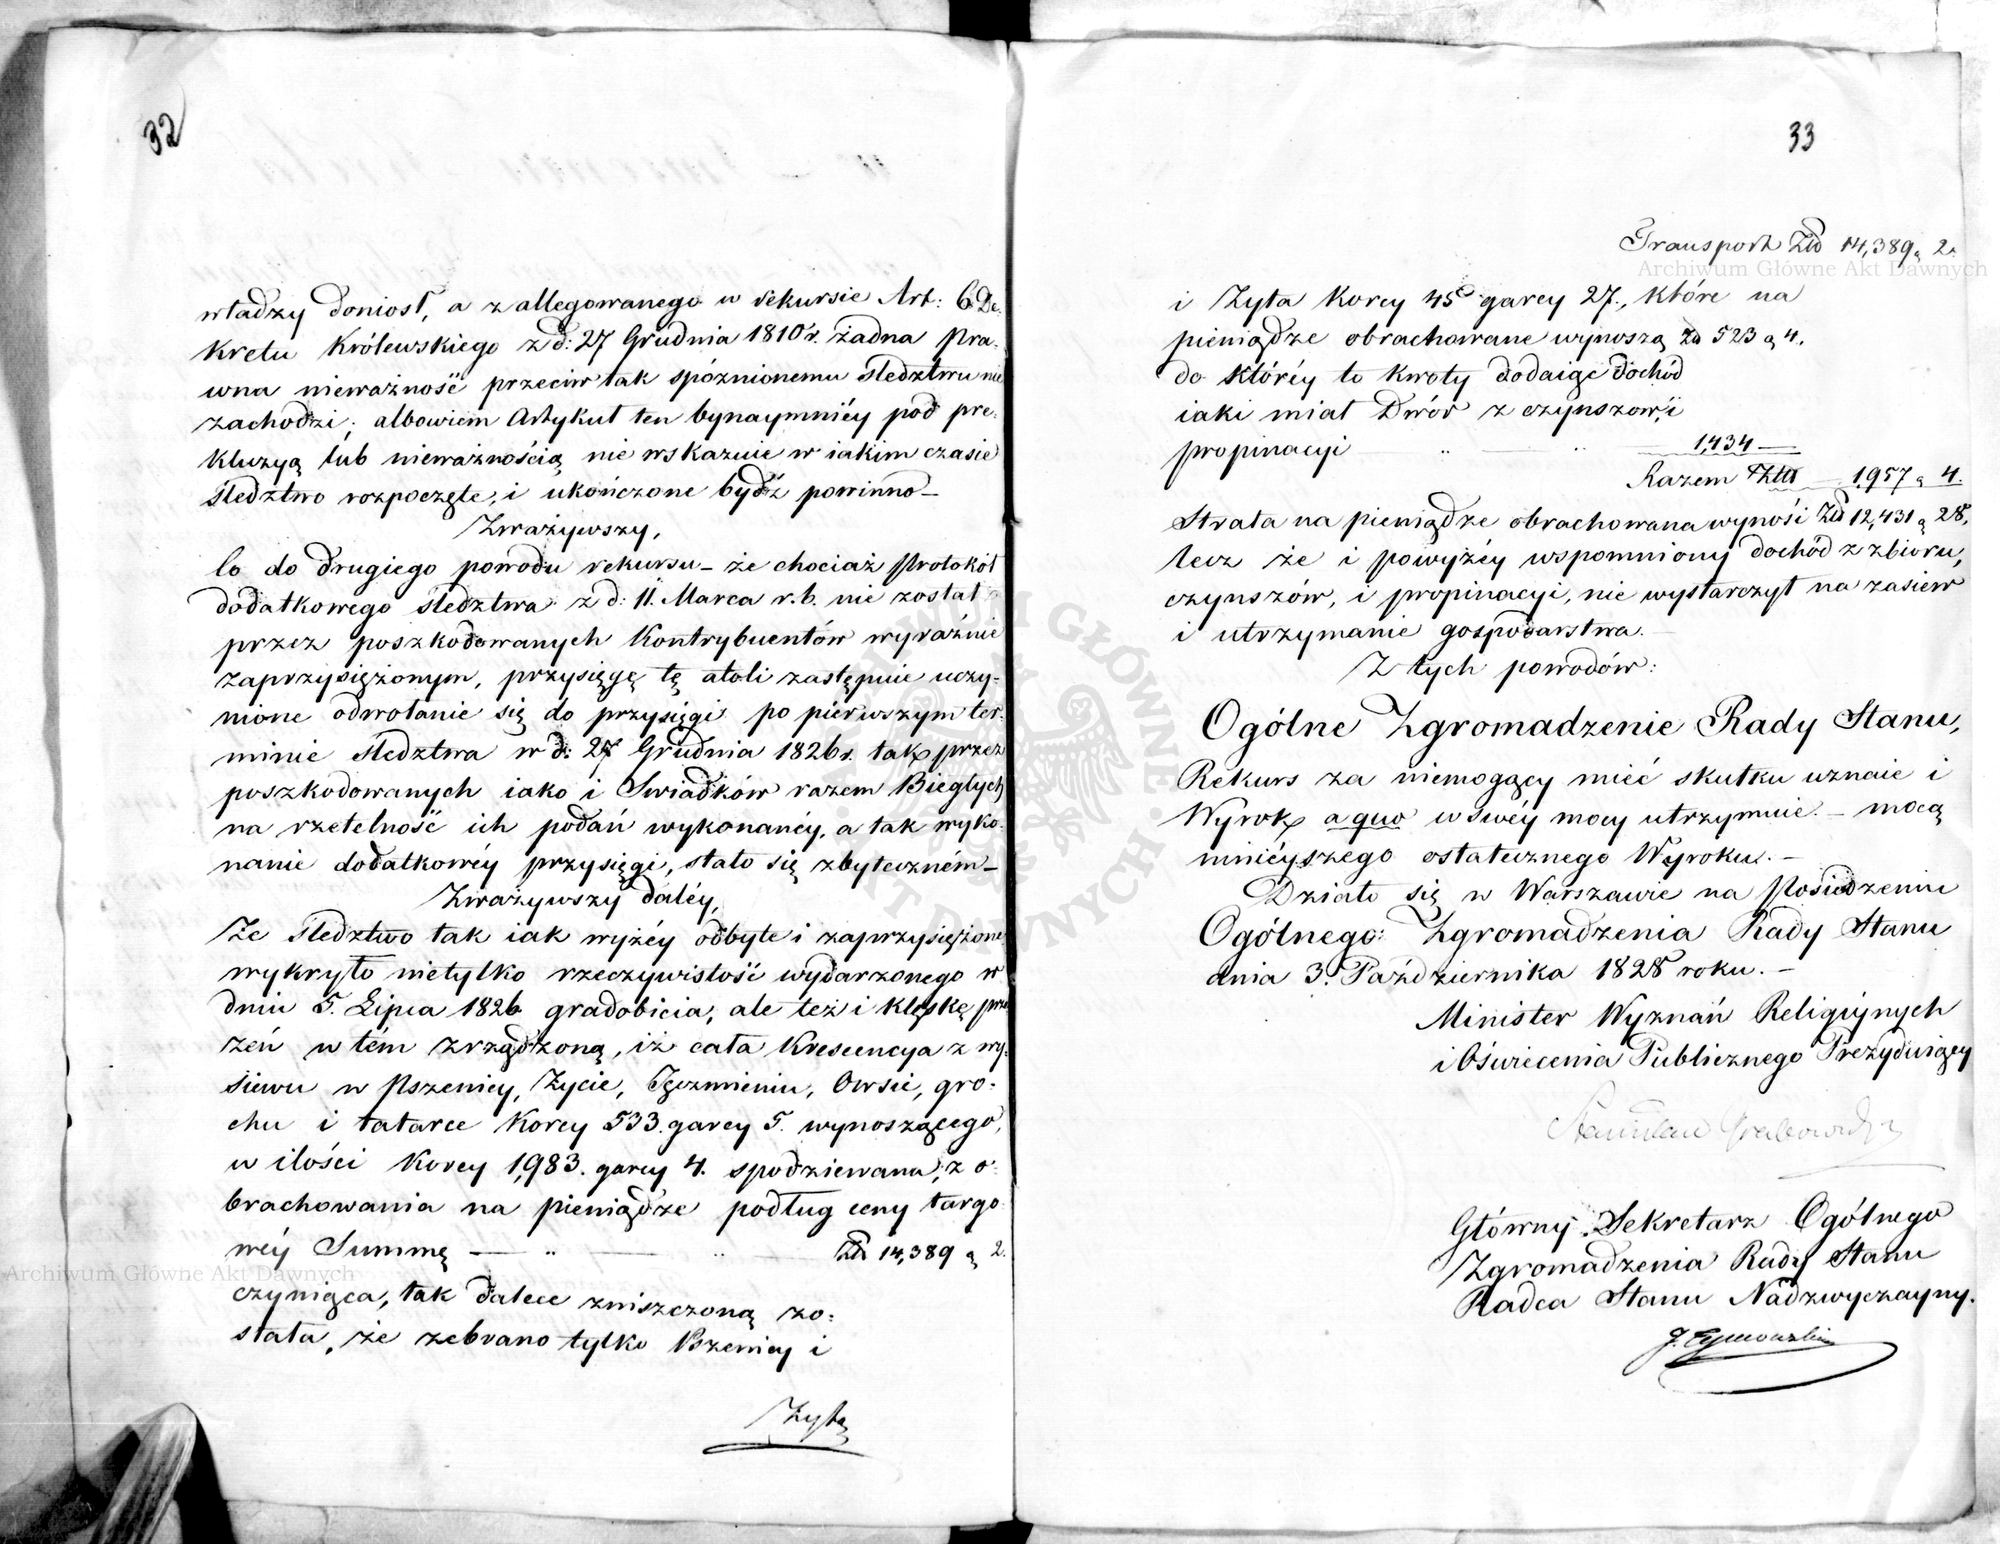 32
władzy doniosł, a z allegowanego w rekursie Art: 6. De-
kretu Królewskiego z d: 27 Grudnia 1810 r. żadna pra-
wna nieważność przeciw tak spóznionemu śledztwu nie
zachodzi; albowiem Artykuł ten bynaymniéy pod pre-
kluzyą lub nieważnością nie wskazuie w iakim czasie
śledztwo rozpoczęte, i ukończone bydź powinno –
Zważywszy,
Co do drugiego powodu rekursu – że chociaż Protokół
dodatkowego śledztwa z d: 11. Marca r. b. nie został
przez poszkodowanych Kontrybuentów wyraźnie
zaprzysiężonym, przysięgę tę atoli zastępuie uczy-
nione odwołanie się do przysięgi po pierwszym ter-
minie śledztwa w d: 27 Grudnia 1826 r. tak przez
poszkodowanych iako i Swiadków razem Biegłych
na rzetelność ich podań wykonanéy, a tak wyko-
nanie dodatkowéy przysięgi, stało się zbyteczném –
Zważywszy daléy,
Że śledztwo tak iak wyżéy odbyte i zaprzysiężone
wykryło nietylko rzeczywistość wydarzonego w
dniu 5. Lipca 1826 gradobicia, ale też i klęskę prze
zeń w tém zrządzoną, iż cała Krescencya z wy-
siewu w Pszenicy, Życie, Jęczmieniu, Owsie, gro-
chu i tatarce Korcy 533. garcy 5. wynoszącego,
w ilości Korcy 1,983. garcy 4. spodziewana, z o-
brachowania na pieniądze podług ceny targo-
wéy Summę — „ — „ — Złp 14,389 g 2.
czyniąca, tak dalece zniszczoną zo-
stała, że zebrano tylko Pszenicy i
Żyta
33
Transport Złp 14,389 g 2.
i Żyta Korcy 45 garcy 27., które na
pieniądze obrachowane wynoszą Zł 523 g 4.
do któréy to kwoty dodaiąc dochód
iaki miał Dwór z czynszów i
propinacyi — „ — „ — 1,434 —
Razem Złp — 1,957 g 4.
Strata na pieniądze obrachowana wynosi Złp 12,431 g 28,
lecz że i powyżéy wspomniony dochód z zbioru,
czynszów, i propinacyi, nie wystarczył na zasiew
i utrzymanie gospodarstwa. –
Z tych powodów:
Ogólne Zgromadzenie Rady Stanu,
Rekurs za niemogący mieć skutku uznaie i
Wyrok a quo w swéy mocy utrzymuie. – mocą
ninieyszego ostatecznego Wyroku. –
Działo się w Warszawie na Posiedzeniu
Ogólnego Zgromadzenia Rady Stanu
dnia 3. Października 1828 roku. –
Minister Wyznań Religiynych
i Oświecenia Publicznego Prezyduiący
Stanisław Grabowski
Główny Sekretarz Ogólnego
Zgromadzenia Rady Stanu
Radca Stanu Nadzwyczayny.
Archiwum Główne Akt Dawnych
Archiwum Główne Akt Dawnych